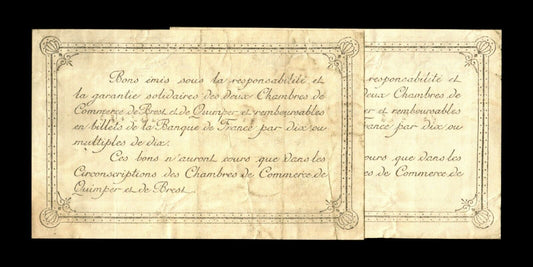 Bons émis sous la responsabilité et
la garantie solidaires des deux Chambres de
Commerce de Brest et de Quimper et remboursables
en billets de la Banque de France par dix ou
multiples de dix.
Ces bons n'auront cours que dans les
Circonscriptions des Chambres de Commerce de
Quimper et de Brest.
responsabilité et
deux Chambres de
er et remboursables
France par dix ou
cours que dans les
es de Commerce de